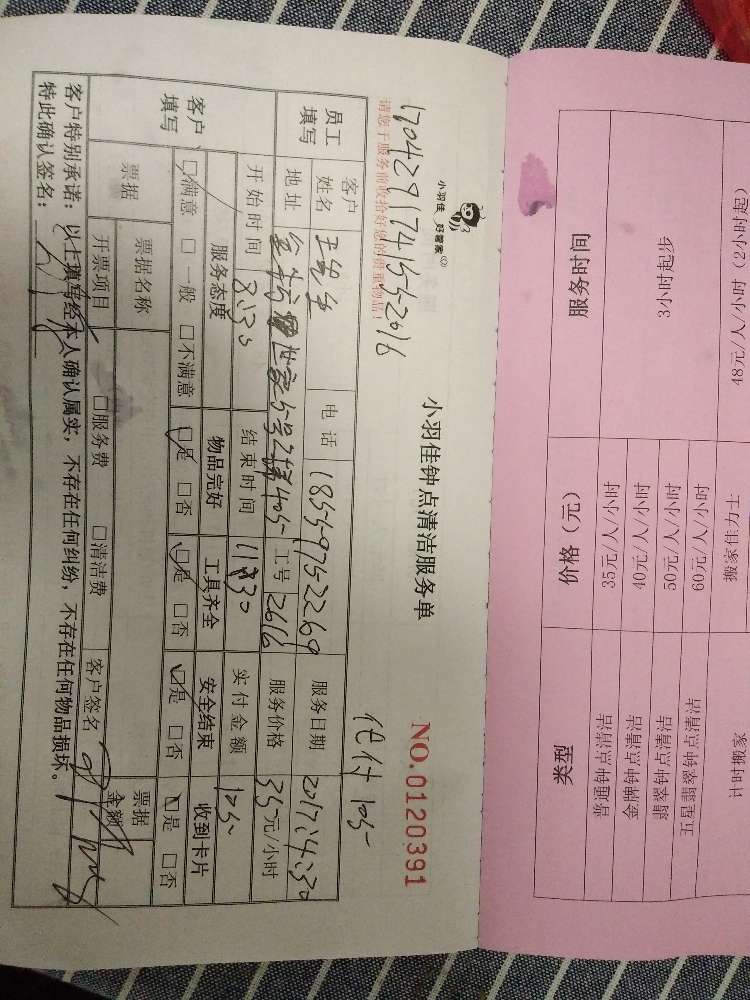 类型 价格（元） 服务时间
普通钟点清洁 35元/人/小时 3小时起步
金牌钟点清洁 40元/人/小时
翡翠钟点清洁 50元/人/小时
五星翡翠钟点清洁 60元/人/小时
计时搬家 搬家佳力士 48元/人/小时（2小时起）
小羽佳 好管家
小羽佳钟点清洁服务单
NO.0120391
170429174155-2616
请您于服务前收拾好您的贵重物品！
代付 105-
员工填写 客户姓名 电话 18554752269 服务日期 2017.4.30
地址 5号2楼405 工号 2616 服务价格 35元/小时
客户填写 开始时间 8:30 结束时间 11:30 实付金额 105-
服务态度 物品完好 工具齐全 安全结束 收到卡片
□满意 □一般 □不满意 □是 □否 □是 □否 □是 □否 □是 □否
票据 票据名称 票据金额
开票项目 □服务费 □清洁费 客户签名
客户特别承诺：以上填写经本人确认属实，不存在任何纠纷，不存在任何物品损坏。
特此确认签名：